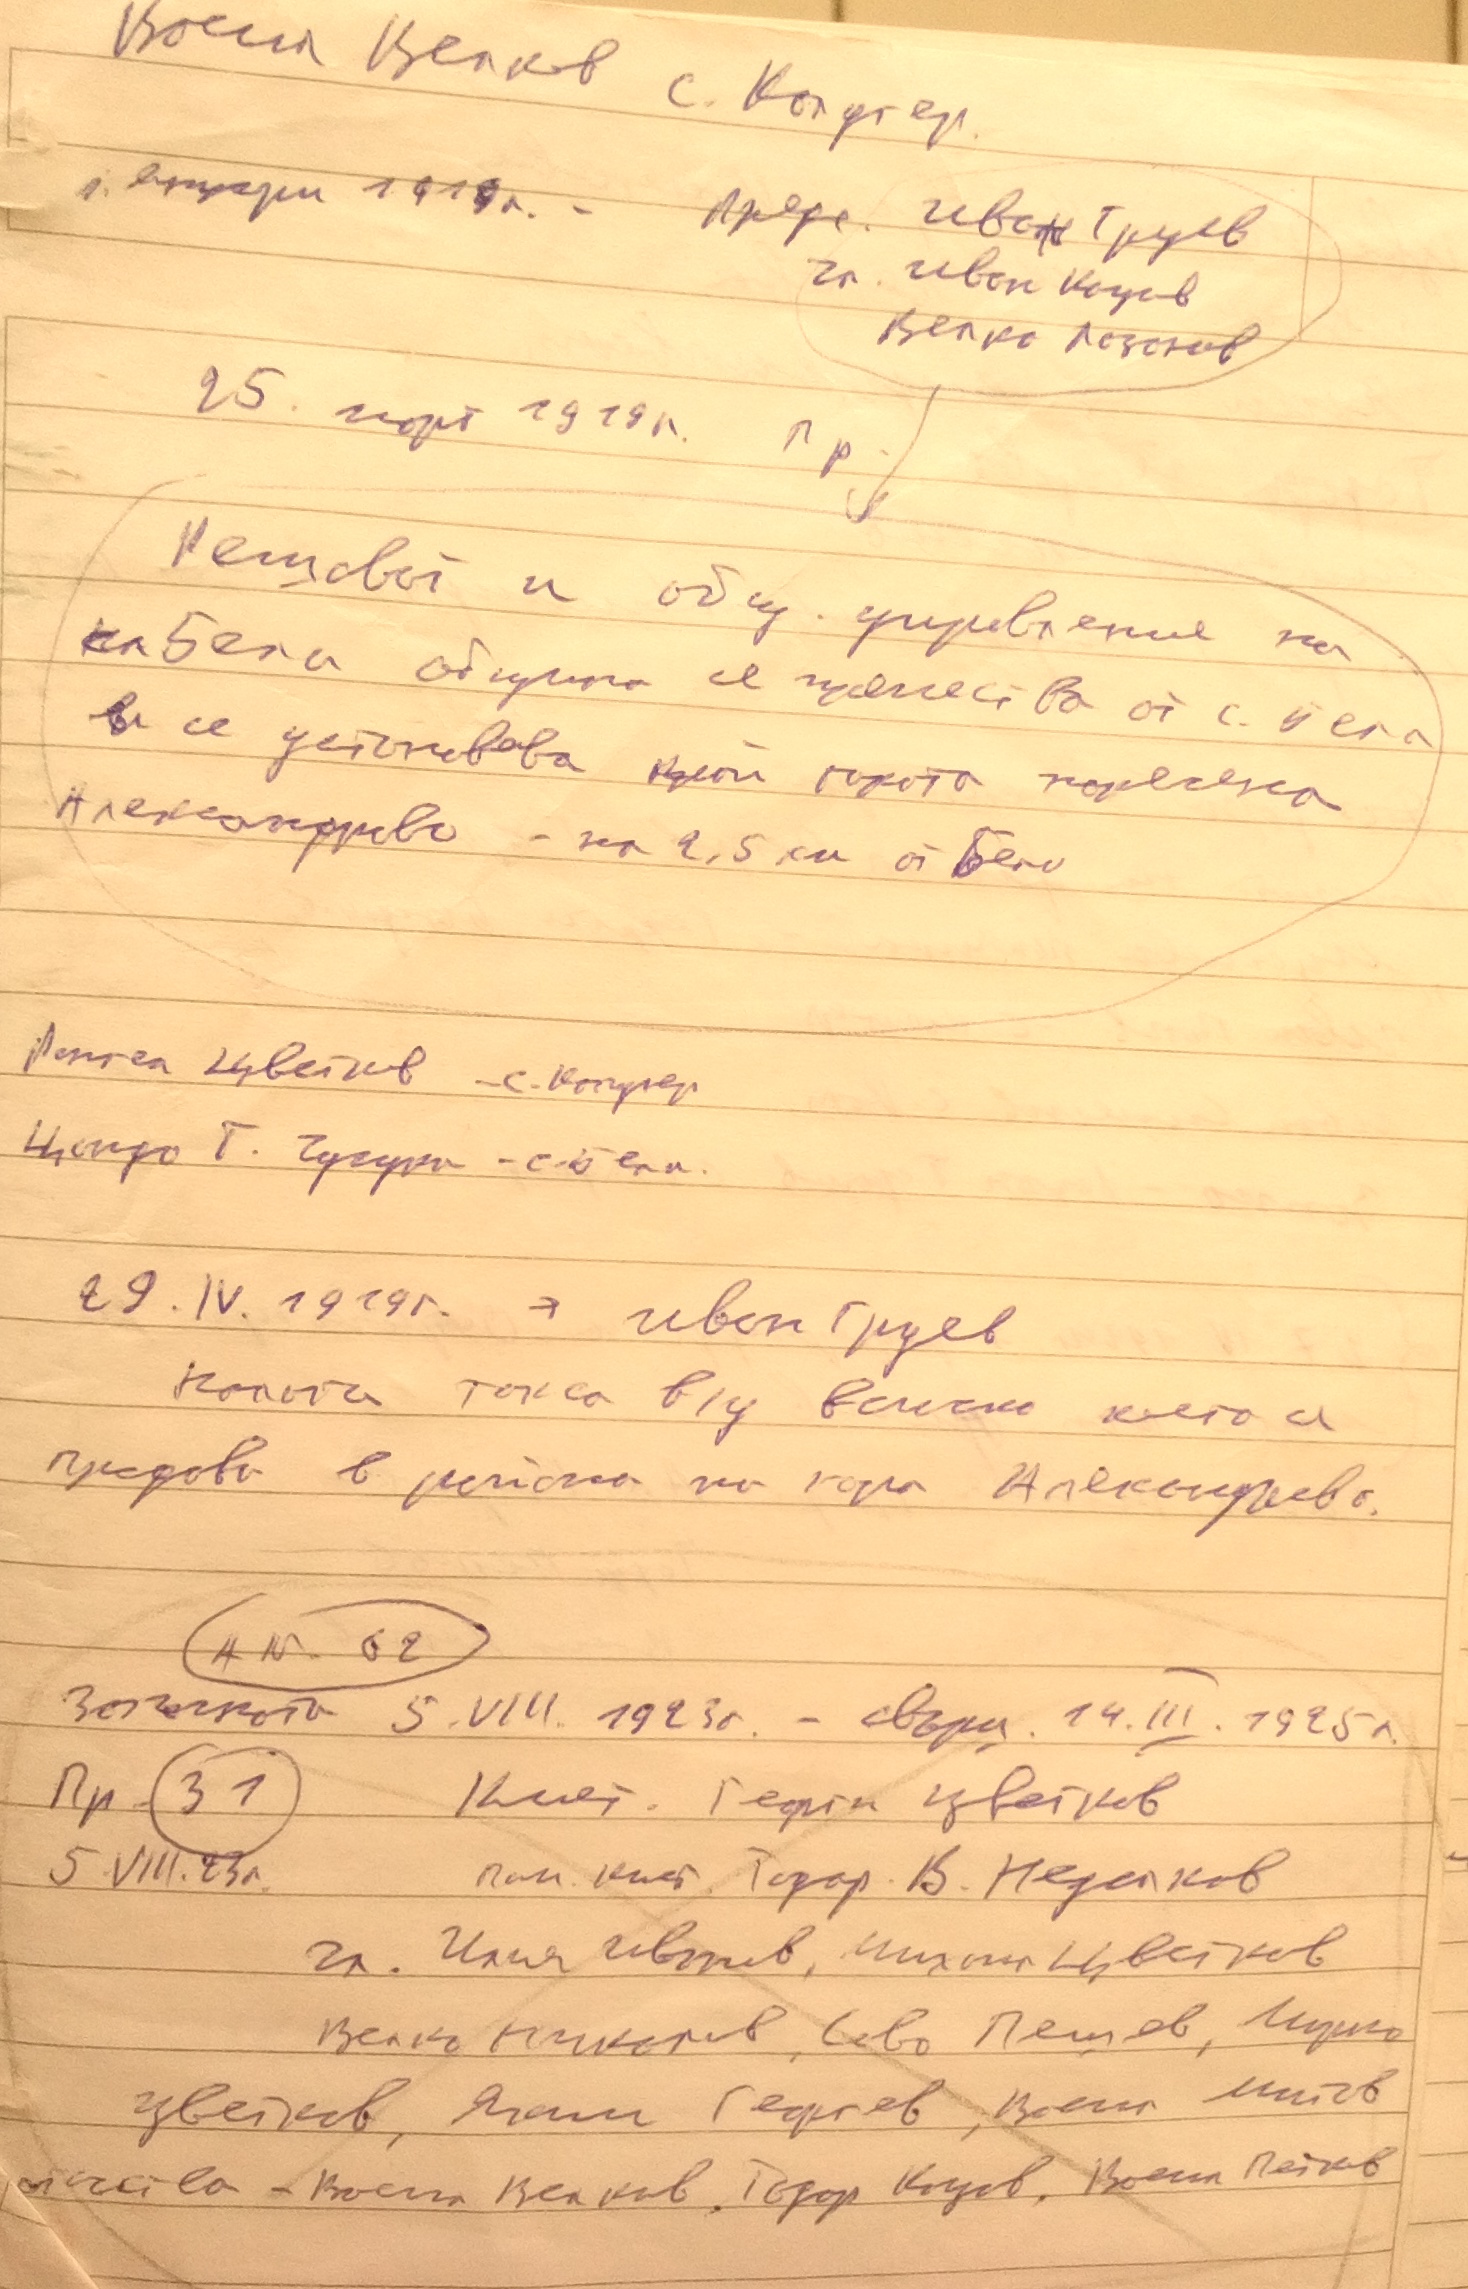 Восил Велков с. Калугер.
1. януари 1919г. - Предс. Иван Груев
чл. Иван Коцов
Велко Лозанов
25. март 1919г. Пр.
Кметсвот и общ. управление на
на Бела община се премества от с. Бела
и се установява край гората наречена
Александрово - на 2,5 км от Бела
Цветков - с. Калугер
Цондо Т. - с. Бела.
29. IV. 1919г. → Иван Груев
Налага такса в/у всичко което се
продава в района на гара Александрово.
А №. 62
Започната 5. VIII. 1923г. - свърш. 14. III. 1925г.
Пр. 31 Кмет. Георги Цветков
5. VIII. 23г. пом. кмет. Тодор. В. Недялков
чл. Илия Иванов, Михаил Цветков
Велко Николов, Саво Пешев, Мирчо
Цветков, Георгиев, Васил Митов
отсъства - Васил Велков, Тодор Коцов, Васил Петков